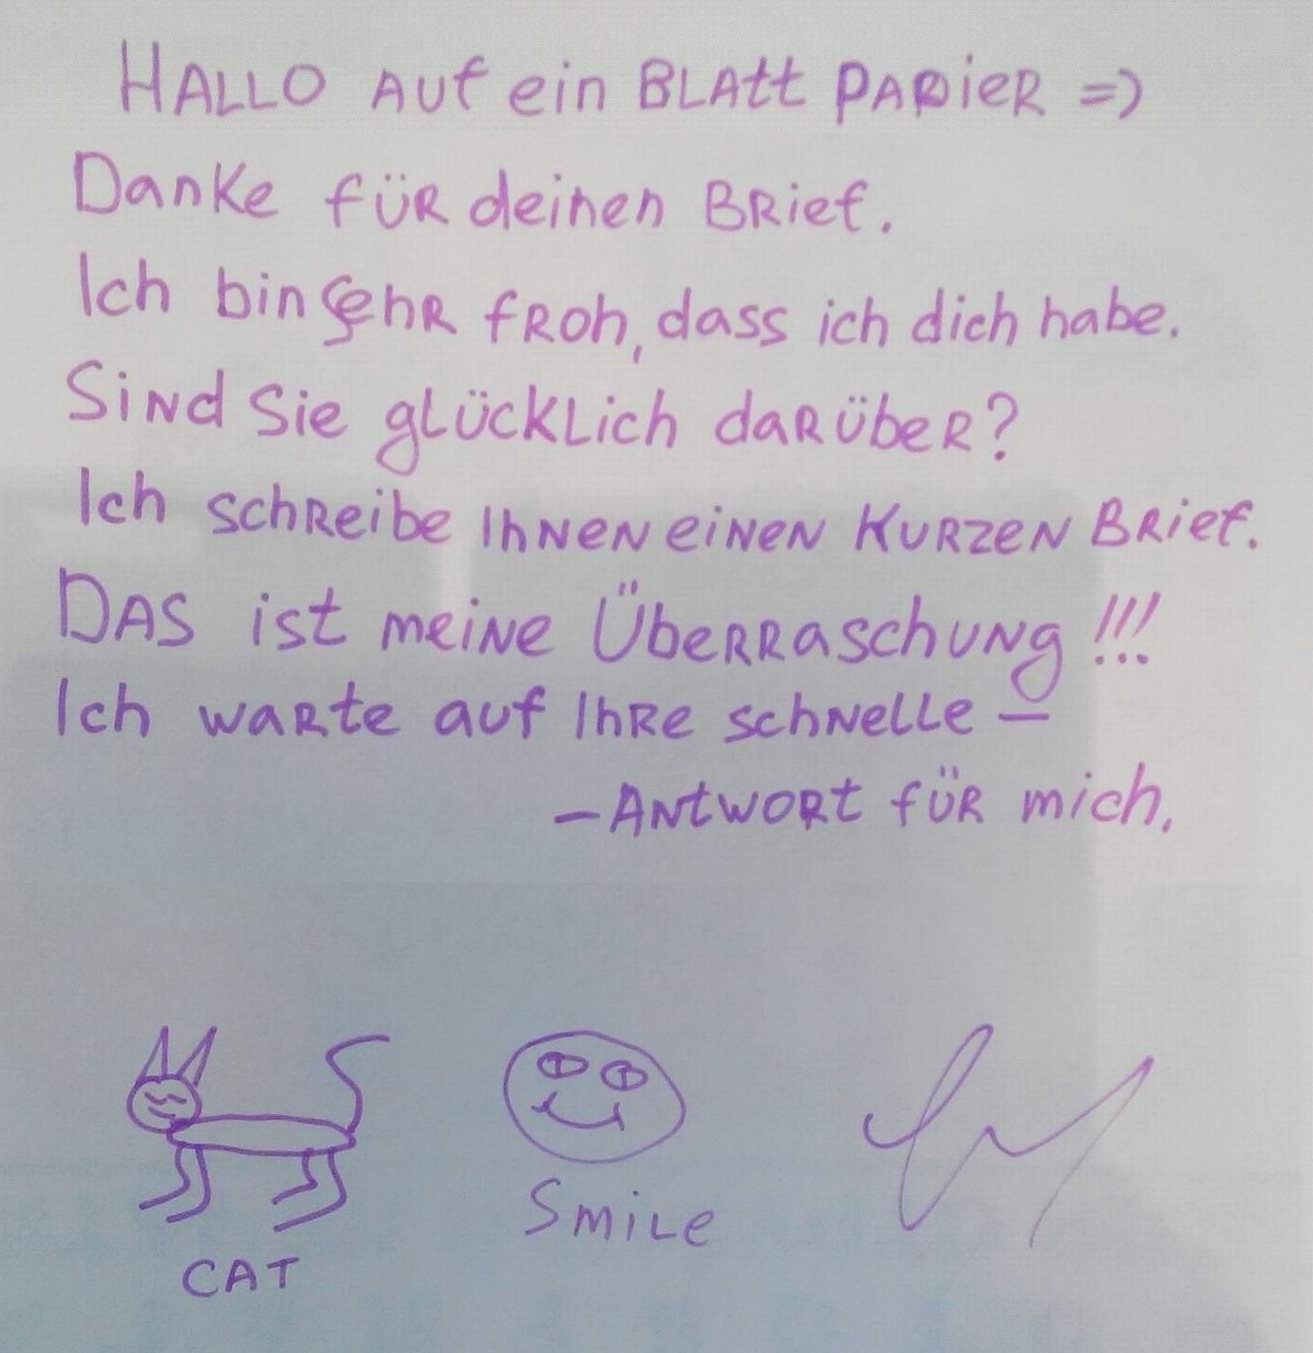 HALLO AUf ein BLAtt PAPieR =)
Danke fÜR deinen BRief.
Ich bin sehR fRoh, dass ich dich habe.
SiNd Sie gLÜCKLich daRÜbeR?
Ich schReibe IhNeN eiNeN KURzeN BRief.
DAS ist meiNe ÜbeRRaschUNg !!!
Ich waRte auf IhRe schNeLLe –
– ANtwoRt fÜR mich.
CAT
SmiLe